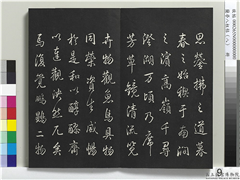 思縈拂之道暮
春之始禊于南澗
之濱高嶺千尋
澄湖万頃乃席
芳草鏡清流覽
卉物觀魚鳥具物
同榮資生咸暢
於是和以醇醪齊
以達觀決然兀矣
焉復覺鵬鷃二物